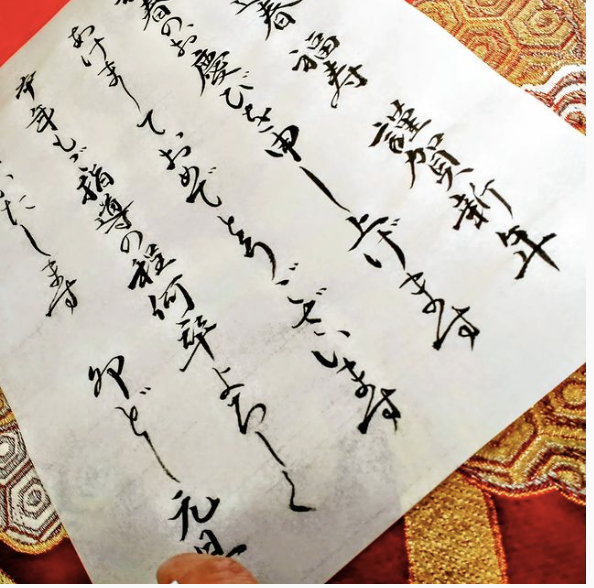 春 福寿 謹賀新年
春のお慶びを申し上げます
あけましておめでとうございます
本年もご指導の程何卒よろしく
いたします
卯どし 元旦